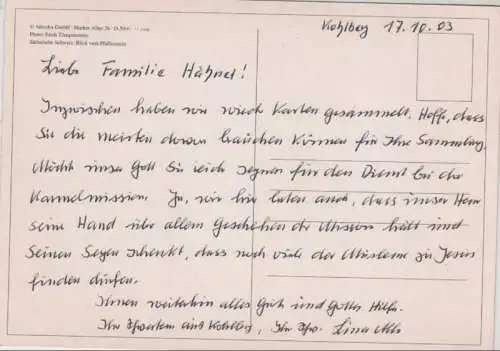 Kohlberg 17.10.03
Sächsische Schweiz: Blick vom Pfaffenstein
Liebe Familie Hähnel!
Inzwischen haben wir wieder Karten gesammelt. Hoffe, dass
Sie die meisten davon brauchen können für Ihre Sammlung.
Möcht unser Gott Sie reich segnen für den Dienst bei der
Karmelmission. Ja, wir hier beten auch, dass unser Herr
seine Hand über allem Geschehen der Mission hält und
Seinen Segen schenkt, dass noch viele der Muslime zu Jesus
finden dürfen.
Ihnen weiterhin alles Gute und Gottes Hilfe.
Ihr aus Kohlberg, Ihr Lina